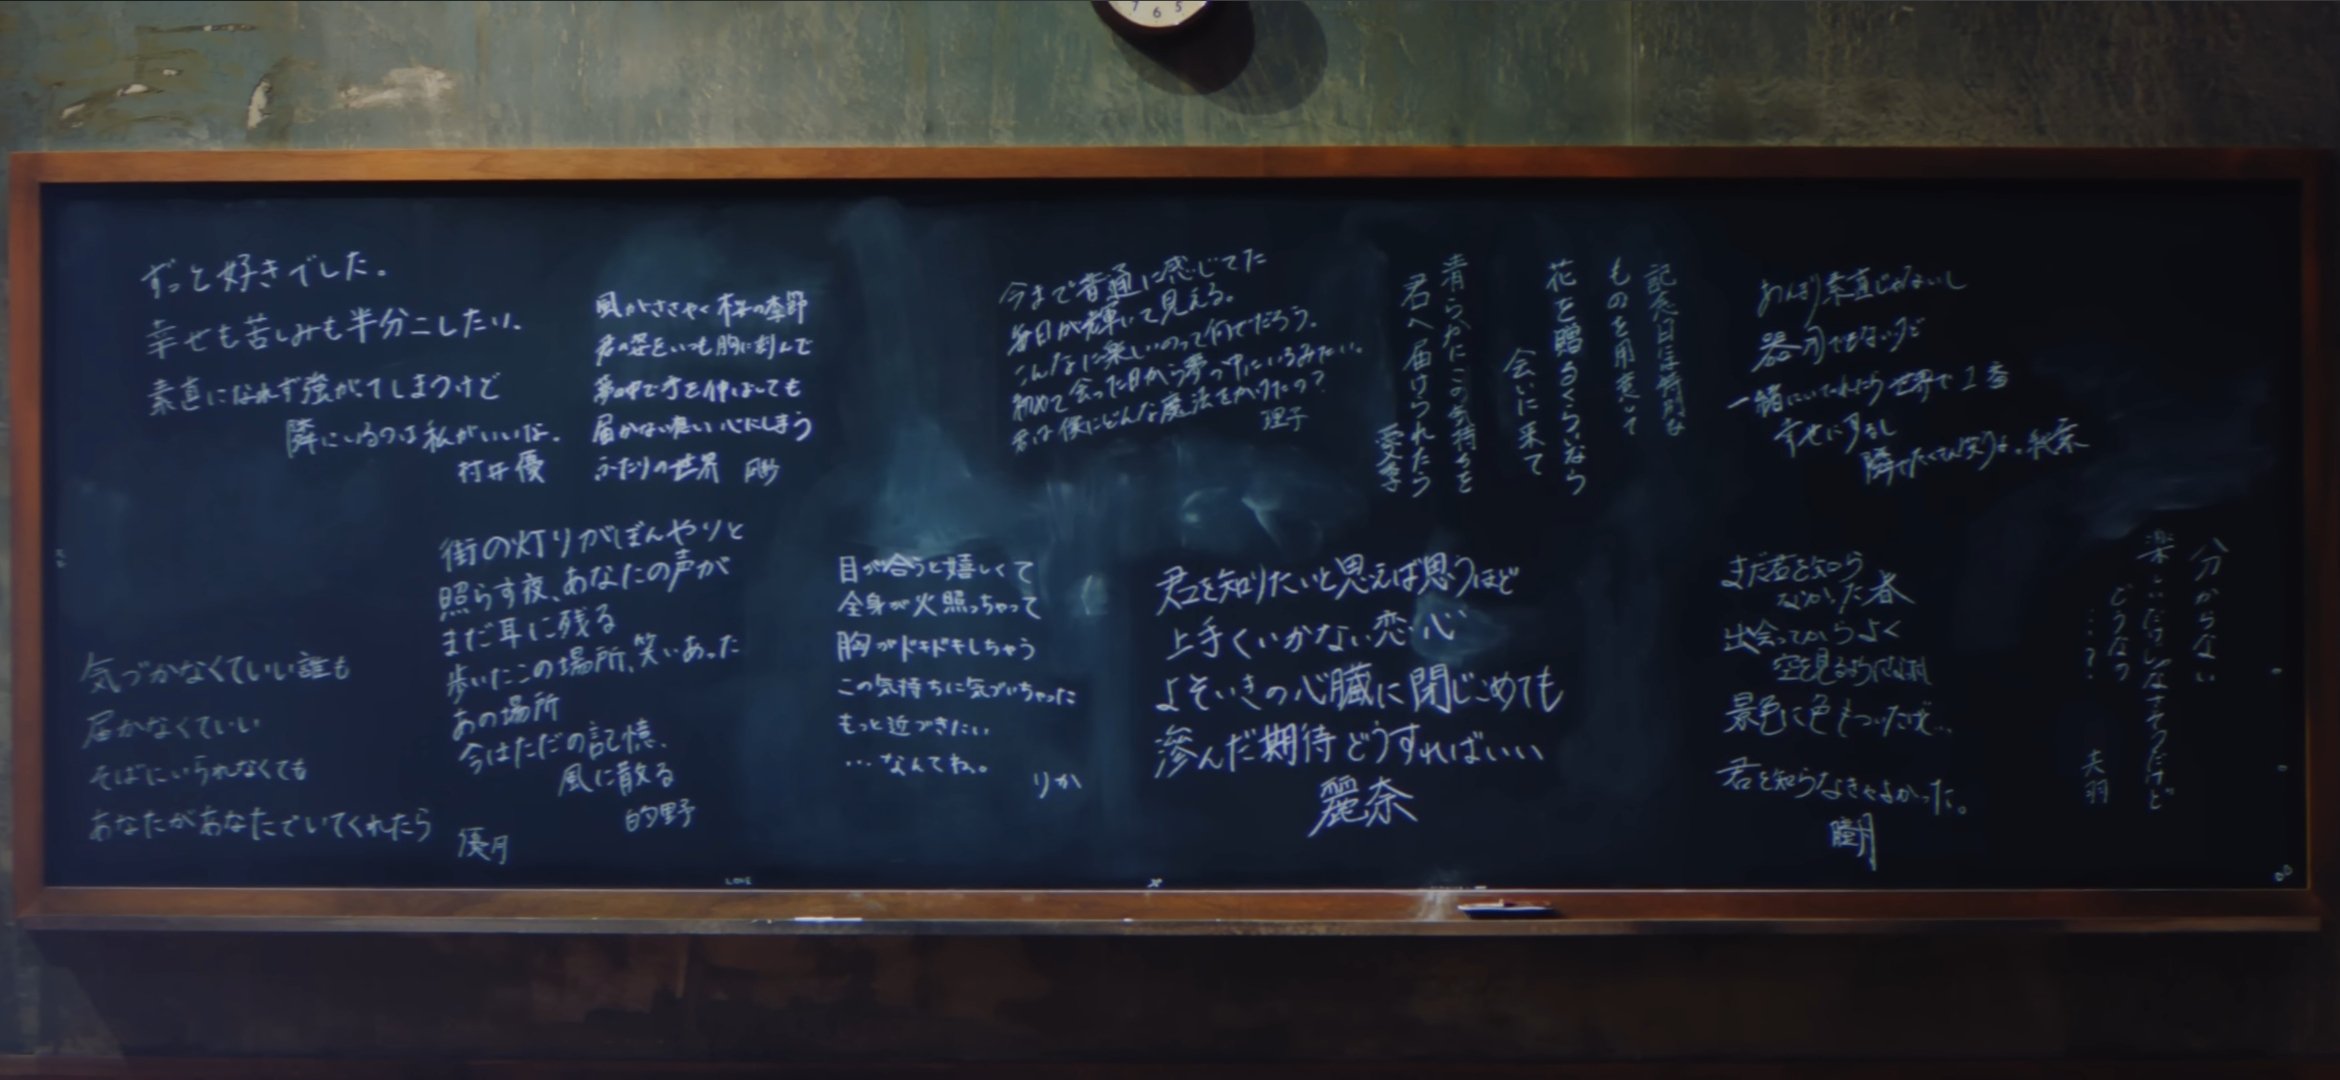 ずっと好きでした。
幸せも苦しみも半分こしたい。
素直になれず強がてしまうけど
隣にいるのは私がいいな。
村井優
風がささやく桜の季節
君の姿をいつも胸に刻んで
夢の中で手を伸ばしても
届かない想い 心にしまう
ふたりの世界
今まで普通に感じてた
毎日が輝いて見える。
こんなに楽しいのって何でだろう。
初めて会った日から夢の中にいるみたい。
君は僕にどんな魔法をかけたの?
理子
記念日は特別な
ものを用意して
花を贈るくらいなら
会いに来て
清らかにこの気持ちを
君へ届けられたら
愛季
あんまり素直じゃないし
器用でもないけど
一緒にいてくれたら世界で1番
幸せにするし
街の灯りがぼんやりと
照らす夜、あなたの声が
まだ耳に残る
歩いたこの場所、笑いあった
あの場所
今はただの記憶、
風に散る
的野
気づかなくていい誰も
届かなくていい
そばにいられなくても
あなたがあなたでいてくれたら
優月
目が合うと嬉しくて
全身が火照っちゃって
胸がドキドキしちゃう
この気持ちに気づいちゃった
もっと近づきたい
…なんてね。
りか
君を知りたいと思えば思うほど
上手くいかない恋心
よそいきの心臓に閉じこめても
滲んだ期待どうすればいい
麗奈
まだ君を知ら
なかった春
出会ってからよく
空を見るようになれば
景色に色もついたけど…
君を知らなきゃよかった。
瞳月
分からない
楽しいだけじゃなさそうだけど
どうなの
…?
美羽
LOVE